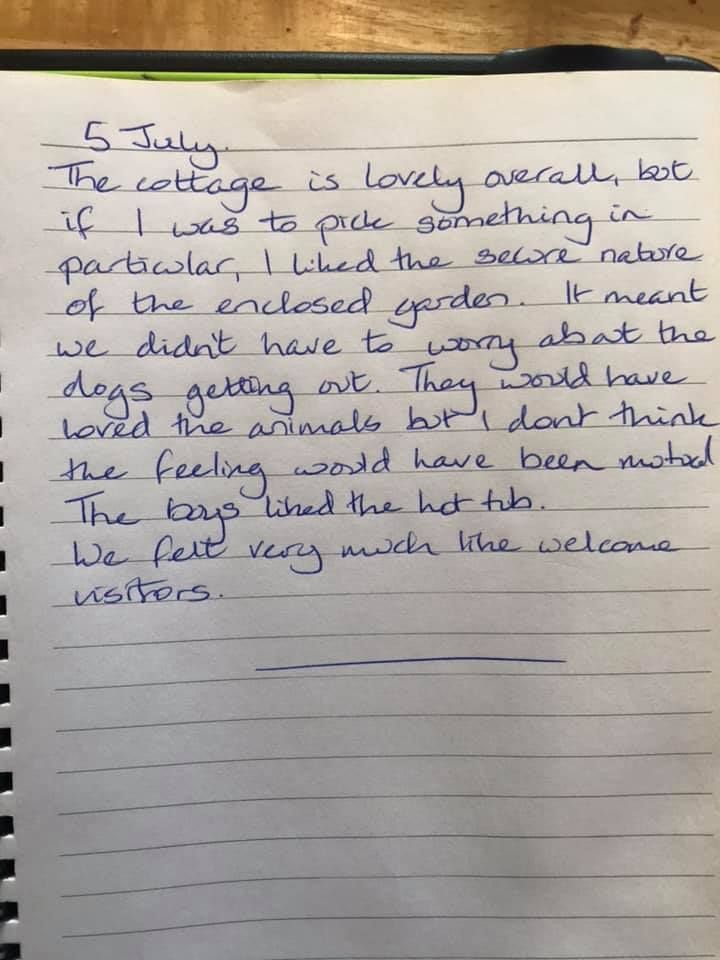 5 July.
The cottage is lovely overall, but
if I was to pick something in
particular, I liked the secure nature
of the enclosed garden. It meant
we didn't have to worry about the
dogs getting out. They would have
loved the animals but I dont think
the feeling would have been mutual
The boys liked the hot tub.
We felt very much like welcome
visitors.